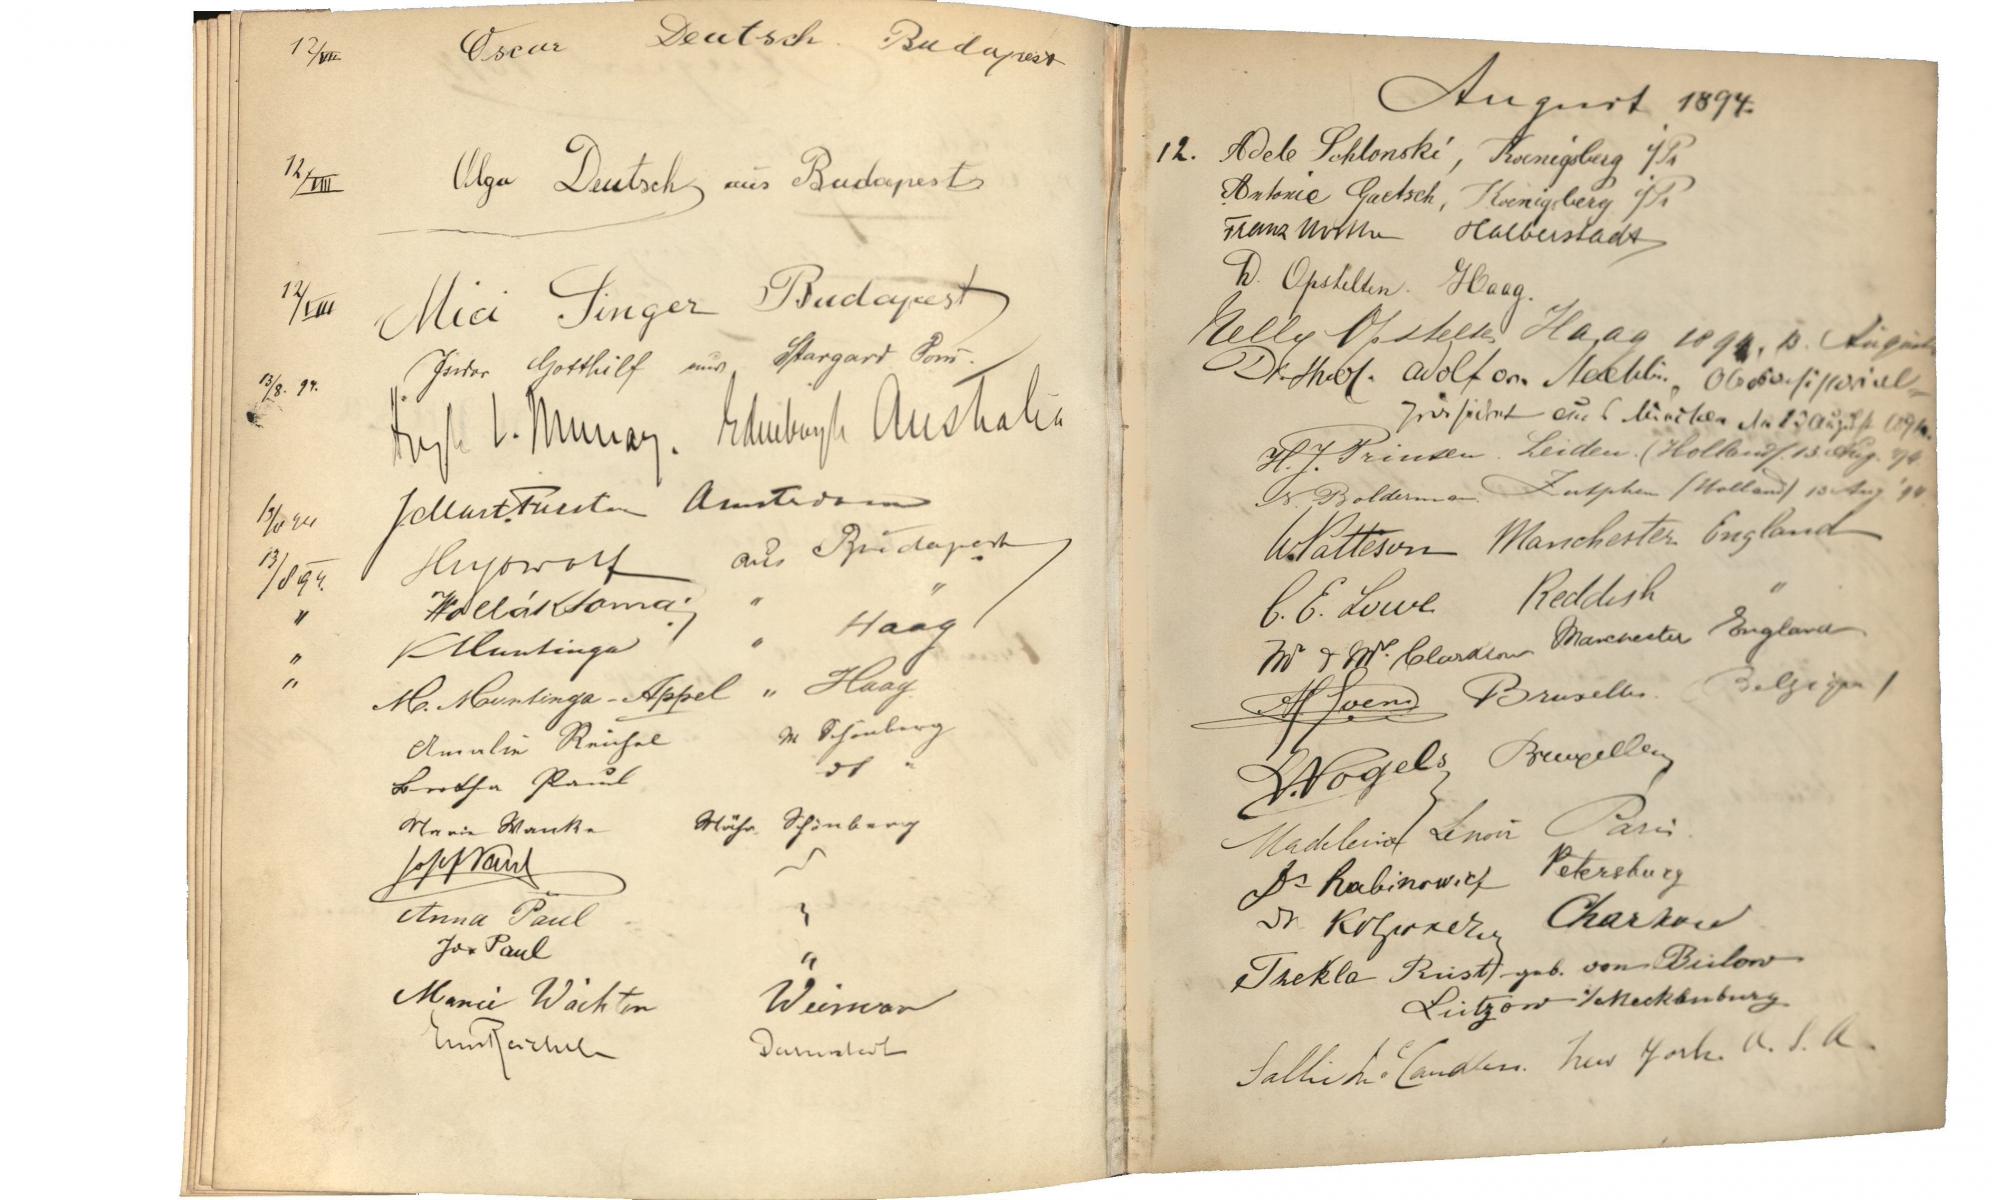 12/VIII Oscar Deutsch Budapest
12/VIII Olga Deutsch aus Budapest
12/VIII Mici Singer Budapest
Gotthilf aus Stargard Pom.
13/8. 94. Hugh L. Murray. Edinburgh Australia
Amsterdam
13/8 94. aus Budapest
" "
" Muntinga " Haag
" M. Muntinga-Appel " Haag
Amalie Reichel M Schönberg
Bertha Paul "
Marie Wanke Mähr. Schönberg
Josef Paul
Anna Paul
Jos Paul "
Marie Wächter Weimar
Reichel Darmstadt
August 1894.
12. Adele Schlonski, Koenigsberg i/Pr
Antonie Gaetsch, Koenigsberg i/Pr
Franz Halberstadt
Opstelten. Haag.
Nelly Opstelten Haag 1894, 13 August
Adolf
präsident aus München 13 August 1894.
H. J. Prinsen. Leiden. (Holland) 13 Aug. '94
Bolderman Zutphen (Holland) 13 Aug '94
W. Patteson Manchester England
C. E. Lowe Reddish "
Mr & Mrs Clarkson Manchester England
Bruxelles. (Belgique)
Vogels Bruxelles
Madeleine Lenoir Paris.
Dr Rabinowicz Petersburg
Dr Charkow
Thekla Rust geb. von Bülow
Lützow i/Mecklenburg
Sallie McCandless. New York. U. S. A.